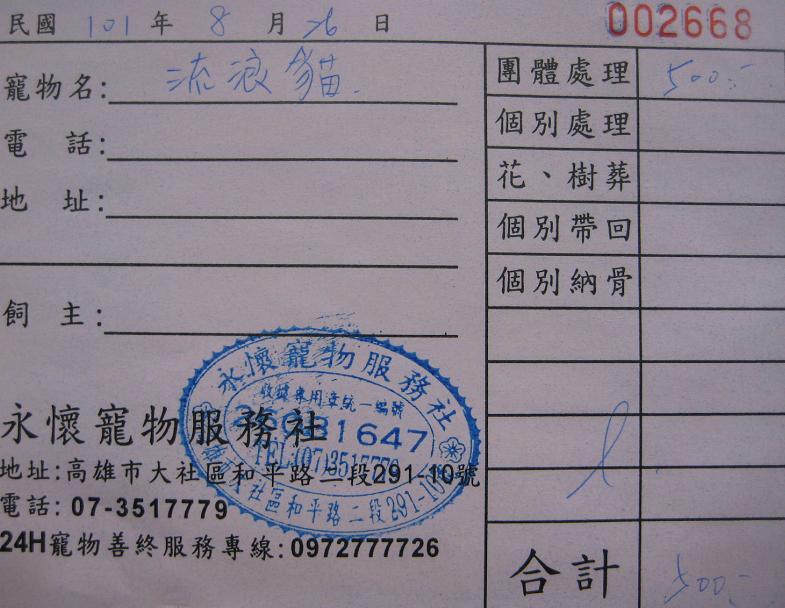 民國 101 年 8 月 26 日
002668
寵物名: 流浪貓
電話:
地址:
飼主:
團體處理 500.-
個別處理
花、樹葬
個別帶回
個別納骨
合計 500.-
永懷寵物服務社
收據專用章統一編號
1647
TEL:(07)3517779
社區和平路二段291-10號
永懷寵物服務社
地址:高雄市大社區和平路二段291-10號
電話: 07-3517779
24H寵物善終服務專線:0972777726